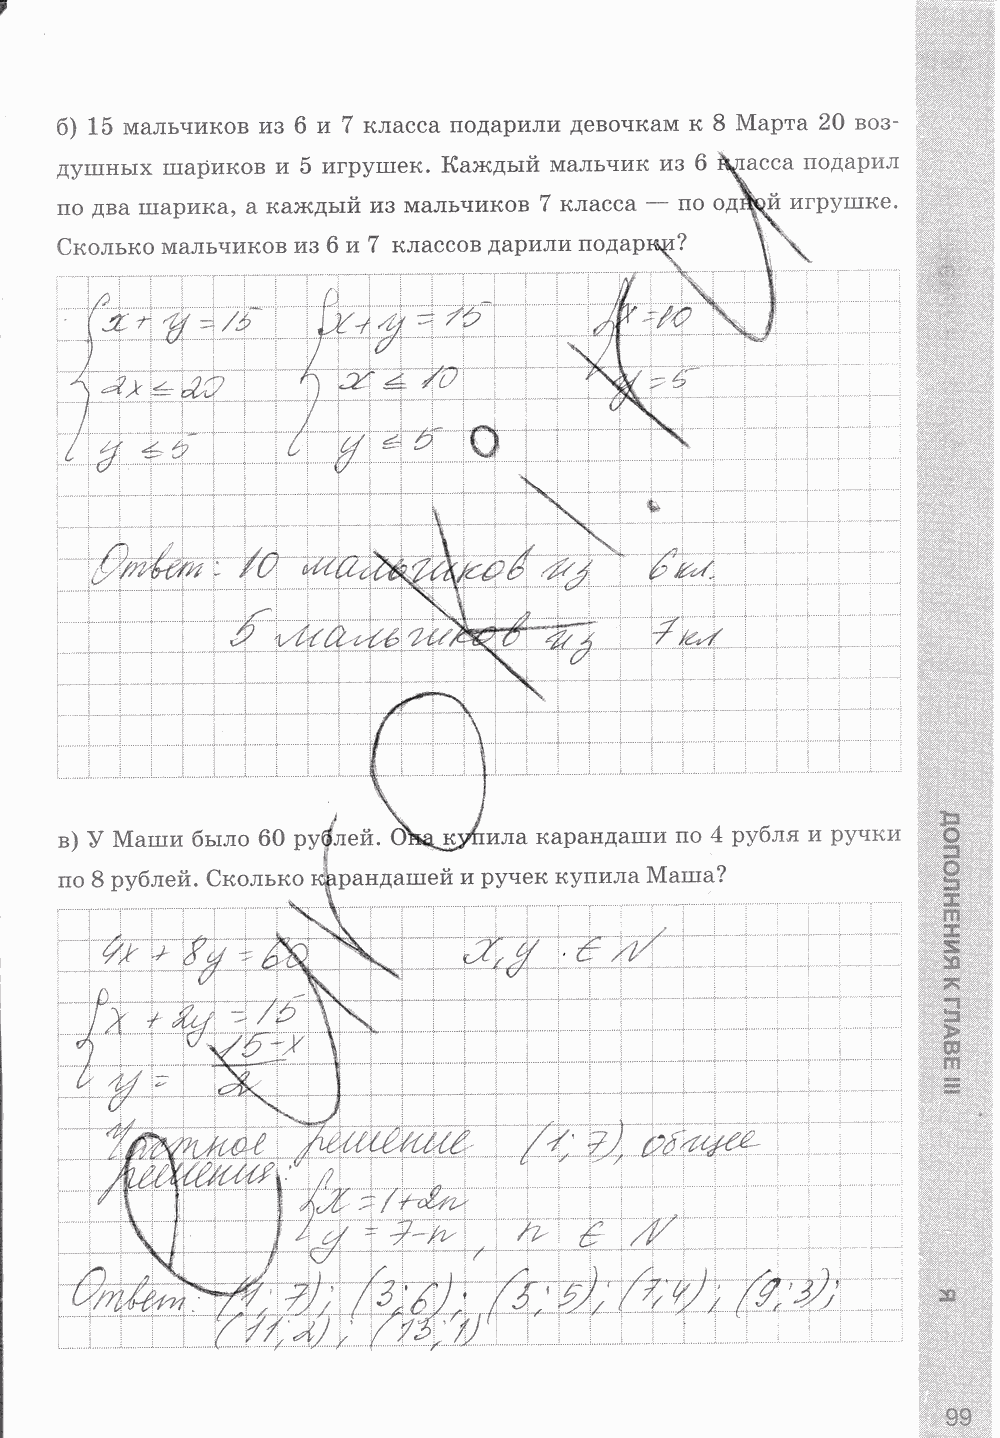 б) 15 мальчиков из 6 и 7 класса подарили девочкам к 8 Марта 20 воз-
душных шариков и 5 игрушек. Каждый мальчик из 6 класса подарил
по два шарика, а каждый из мальчиков 7 класса — по одной игрушке.
Сколько мальчиков из 6 и 7 классов дарили подарки?
x + y = 15 x + y = 15 x = 10
2x ≤ 20 x ≤ 10 y = 5
y ≤ 5 y ≤ 5
Ответ: 10 мальчиков из 6 кл.
5 мальчиков из 7 кл
в) У Маши было 60 рублей. Она купила карандаши по 4 рубля и ручки
по 8 рублей. Сколько карандашей и ручек купила Маша?
4x + 8y = 60 x, y ∈ N
x + 2y = 15
y = (15-x)/2
Частное решение (1; 7), общее
решение:
x = 1+2n
y = 7-n, n ∈ N
Ответ: (1; 7); (3; 6); (5; 5); (7; 4); (9; 3);
(11; 2); (13; 1)
ДОПОЛНЕНИЯ К ГЛАВЕ III
Я
99